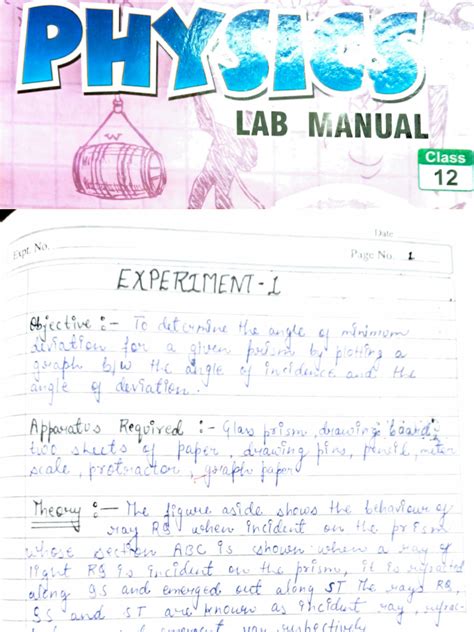 PHYSICS
LAB MANUAL
Class
12
W
Date
Expt. No.
Page No. 1
EXPERIMENT-1
Objective :- To determine the angle of minimum
deviation for a given prism by plotting a
graph b/w the angle of incidence and the
angle of deviation.
Apparatus Required :- Glass prism, drawing board,
two sheets of paper, drawing pins, pencil, meter
scale, protractor, graph paper
Theory :- The figure aside shows the behaviour of
ray RQ when incident on the prism
whose section ABC is shown when a ray of
light RQ is incident on the prism, it is refracted
along QS and emerged out along ST The rays RQ,
QS and ST are known as incident ray, refrac-
ray respectively